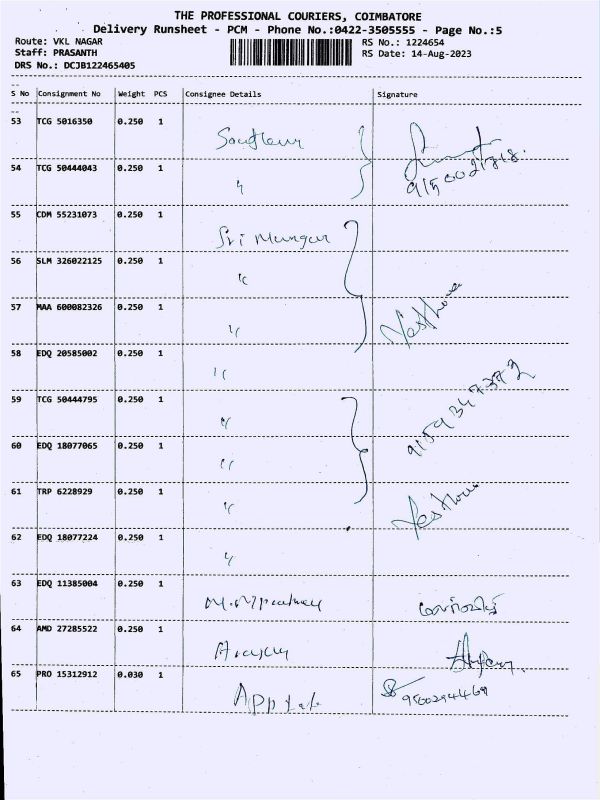 THE PROFESSIONAL COURIERS, COIMBATORE
Delivery Runsheet - PCM - Phone No.:0422-3505555 - Page No.:5
Route: VKL NAGAR
Staff: PRASANTH
DRS No.: DCJB122465405
RS No.: 1224654
RS Date: 14-Aug-2023
S No Consignment No Weight PCS Consignee Details Signature
53 TCG 5016350 0.250 1
54 TCG 50444043 0.250 1 〃
55 CDM 55231073 0.250 1 Sri Murugan
56 SLM 326022125 0.250 1 〃
57 MAA 600082326 0.250 1 〃
58 EDQ 20585002 0.250 1 〃
59 TCG 50444795 0.250 1 〃
9159347372
60 EDQ 18077065 0.250 1 〃
61 TRP 6228929 0.250 1 〃
62 EDQ 18077224 0.250 1 〃
63 EDQ 11385004 0.250 1
64 AMD 27285522 0.250 1
65 PRO 15312912 0.030 1
9500294469